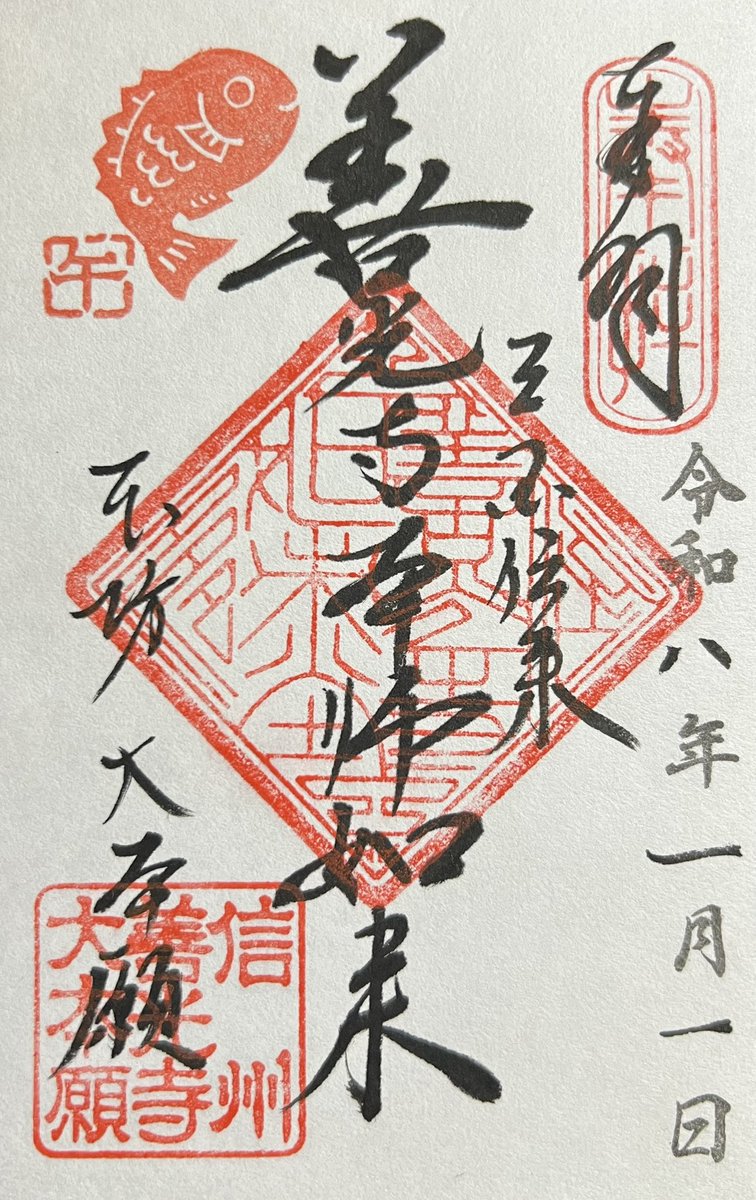 奉拝
令和八年一月一日
三国伝来
善光寺本師如来
本坊 大本願
午
信州
善光寺
大本願